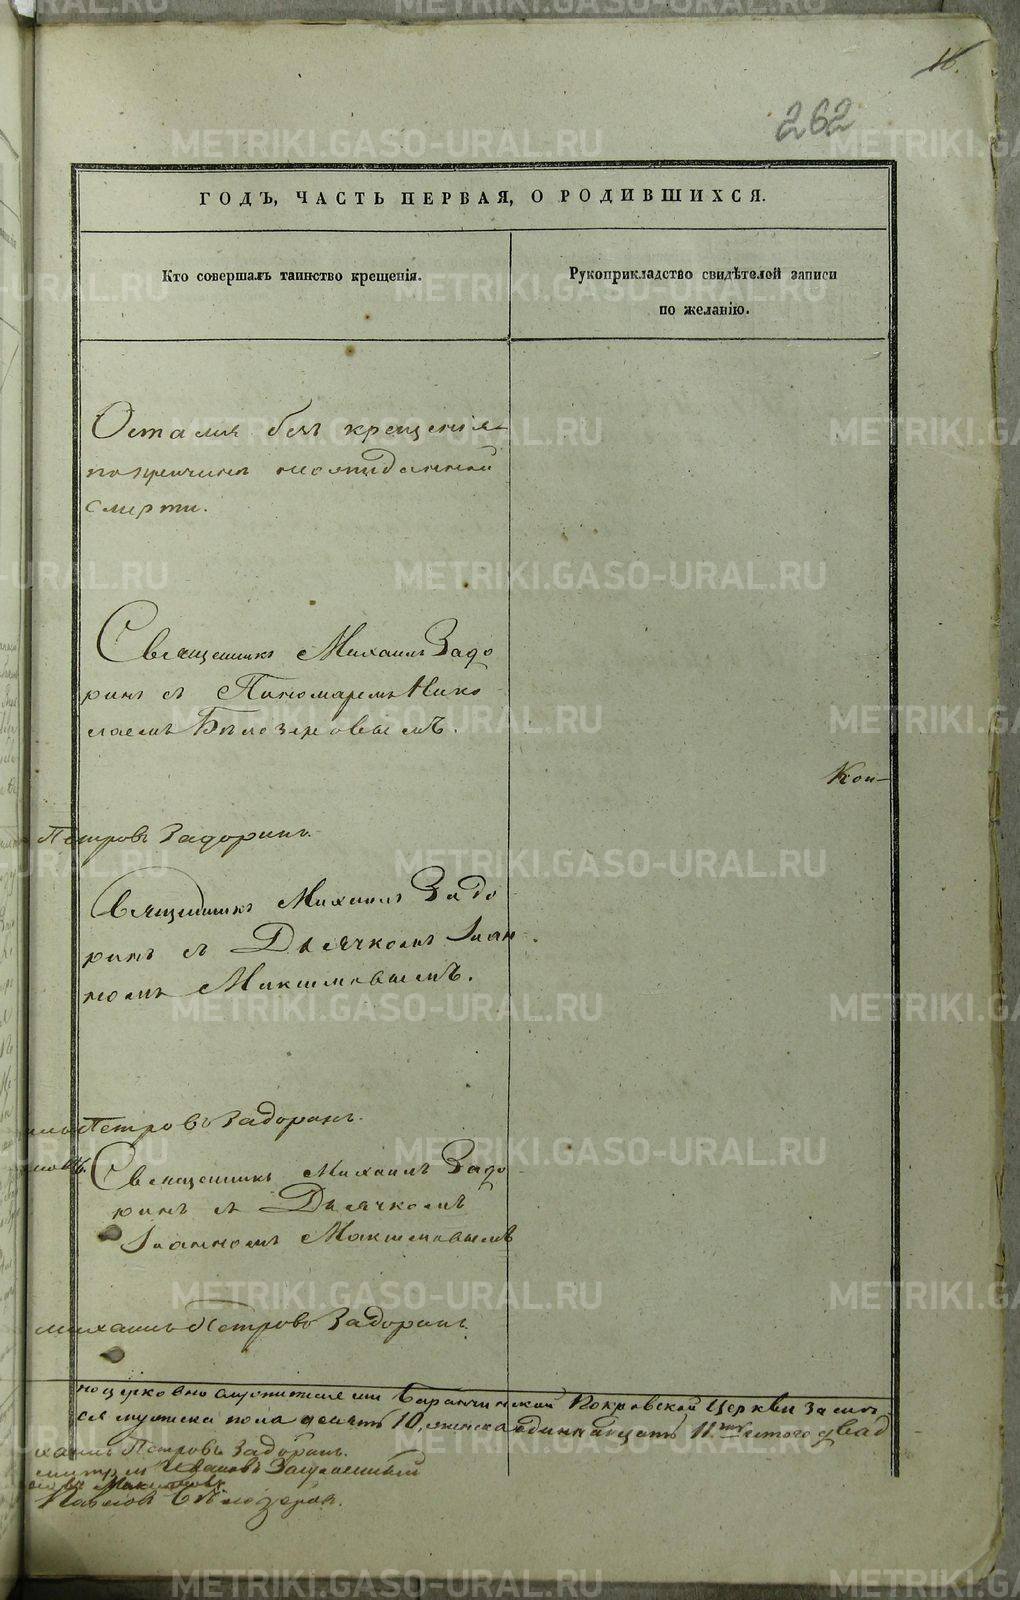 16.
262
ГОДЪ, ЧАСТЬ ПЕРВАЯ, О РОДИВШИХСЯ.
Кто совершалъ таинство крещенія.
Рукоприкладство свидѣтелей записи
по желанію.
Осталия безъ крещенія
попричинѣ неожиданной
смерти.
Священникъ Михаилъ Задо
ринъ съ Пономаремъ Нико
лаемъ Бѣлозеровымъ.
Кон-
Петровъ Задоринъ.
Священникъ Михаилъ Задо
ринъ съ Дьячкомъ Іоан
номъ Максимовымъ.
Петровъ Задоринъ.
Священникъ Михаилъ Задо
ринъ съ Дьячкомъ
Іоанномъ Максимовымъ
Михаилъ Петровъ Задоринъ
Баранчинской Покровской Церкви
мужеска пола десять 10, женска одиннадцать 11
Петровъ Задоринъ.
Ивановъ
Максимовъ
Павловъ Бѣлозеровъ.
METRIKI.GASO-URAL.RU